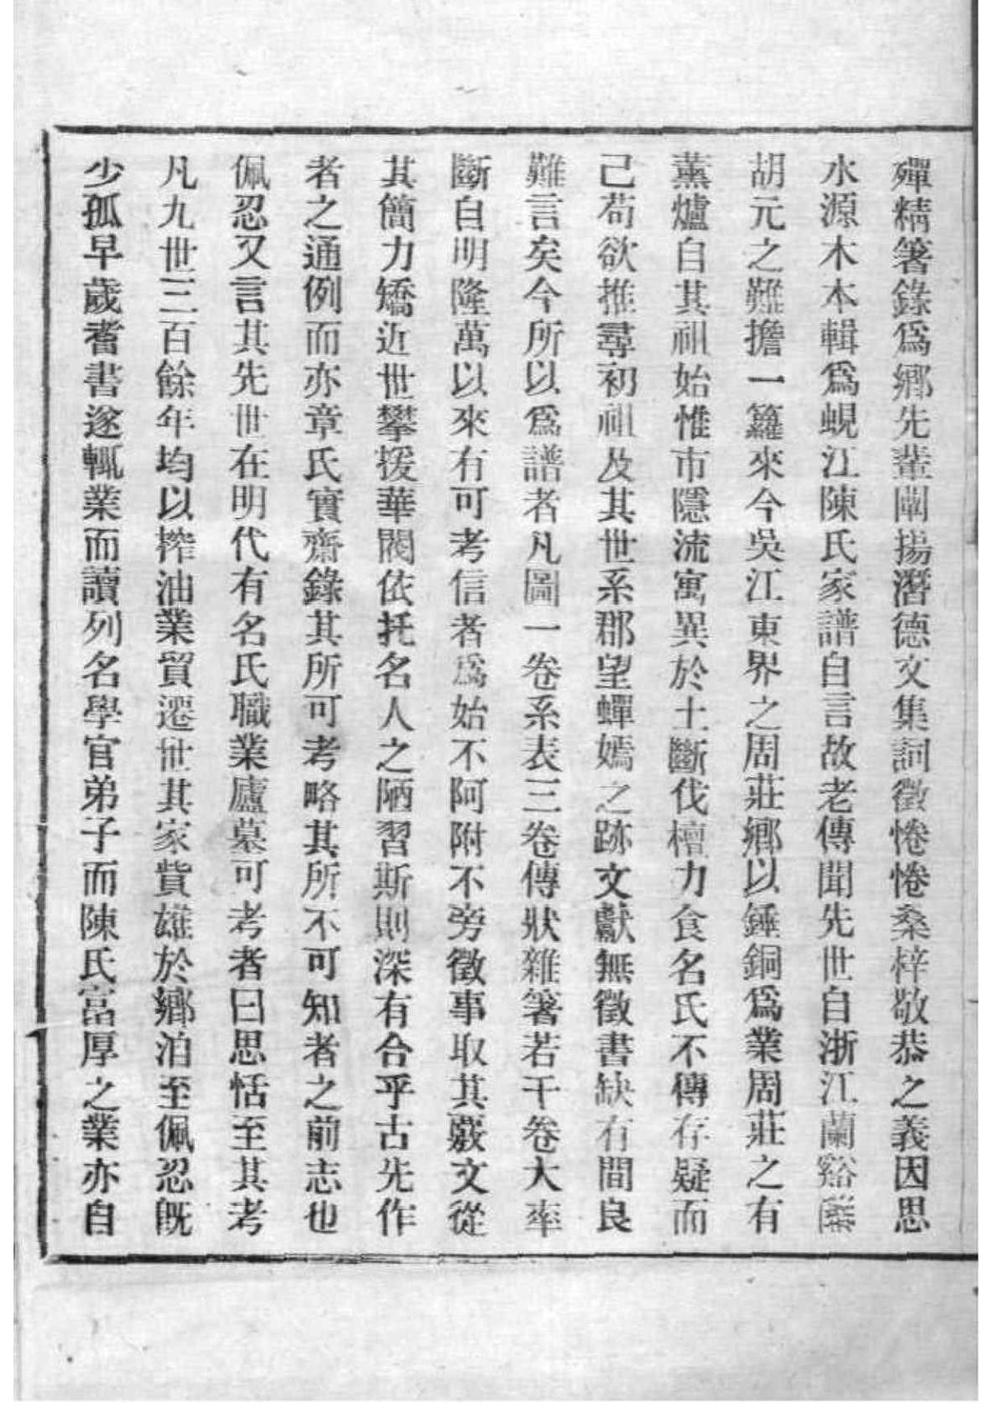 殫精箸錄爲鄉先輩闡揚潛德文集詞徵惓惓桑梓敬恭之義因思
水源木本輯爲蜆江陳氏家譜自言故老傳聞先世自浙江蘭谿
胡元之難擔一籮來今吳江東界之周莊鄉以錘銅爲業周莊之有
薰爐自其祖始惟市隱流寓異於土斷伐檀力食名氏不傳存疑而
己苟欲推尋初祖及其世系郡望蟬嫣之跡文獻無徵書缺有間良
難言矣今所以爲譜者凡圖一卷系表三卷傳狀雜箸若干卷大率
斷自明隆萬以來有可考信者爲始不阿附不旁徵事取其覈文從
其簡力矯近世攀援華閥依托名人之陋習斯則深有合乎古先作
者之通例而亦章氏實齋錄其所可考略其所不可知者之前志也
佩忍又言其先世在明代有名氏職業廬墓可考者曰思恬至其考
凡九世三百餘年均以榨油業貿遷世其家貲雄於鄉洎至佩忍旣
少孤早歲耆書遂輒業而讀列名學官弟子而陳氏富厚之業亦自